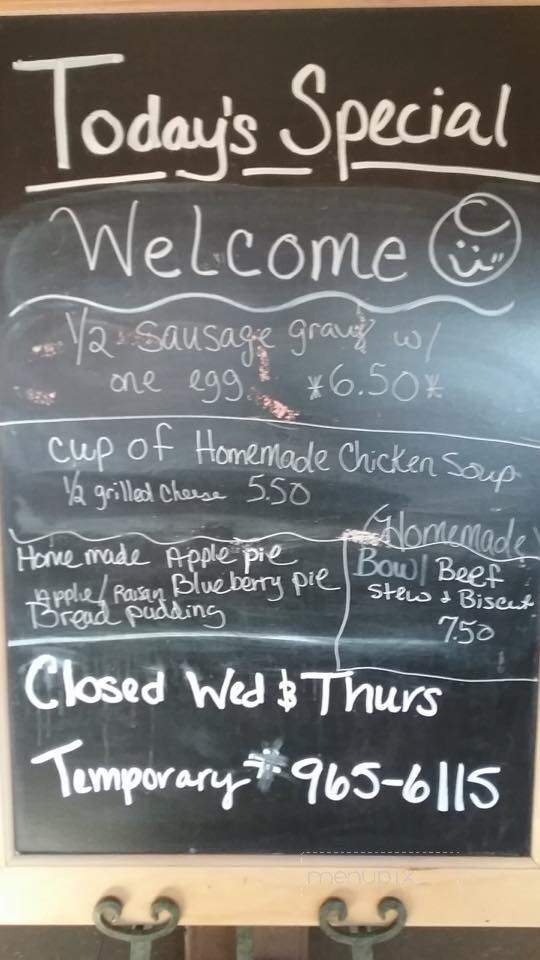 Today's Special
Welcome
1/2 sausage gravy w/
one egg *6.50*
cup of Homemade Chicken Soup
1/2 grilled cheese 5.50
Homemade Apple pie
Apple/Raisin Blueberry pie
Bread pudding
Homemade
Bowl Beef
Stew & Biscuit
7.50
Closed Wed & Thurs
Temporary # 965-6115
menupix